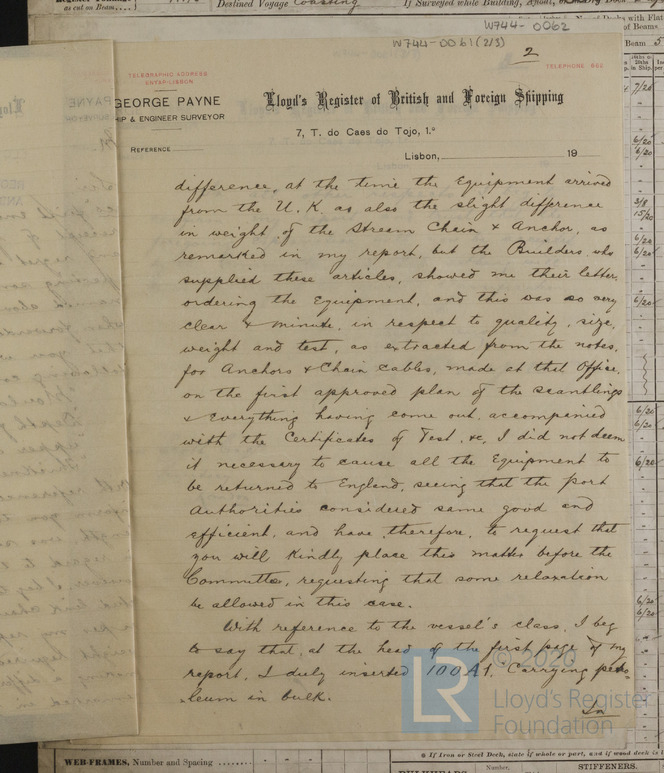 as cut on Beam....
Destined Voyage Coasting
If Surveyed while Building, Afloat,
W744-0062
W744-0061(2/3)
2
TELEGRAPHIC ADDRESS
TELEPHONE 662
GEORGE PAYNE
Lloyd's Register of British and Foreign Shipping
SHIP & ENGINEER SURVEYOR
7, T. do Caes do Tojo, 1.º
REFERENCE
Lisbon, 19
difference, at the time the Equipment arrived
from the U.K. as also the slight difference
in weight of the Stream Chain & Anchor, as
remarked in my report, but the Builders, who
supplied these articles, showed me their letter,
ordering the Equipment, and this was so very
clear & minute, in respect to quality, size,
weight and test, as extracted from the notes,
for Anchors & Chain Cables, made at that Office,
on the first approved plan of the scantlings
& Everything having come out, accompanied
with the Certificates of Test, &c, I did not deem
it necessary to cause all the Equipment to
be returned to England, seeing that the Port
Authorities considered same good and
efficient, and have, therefore, to request that
you will kindly place this matter before the
Committee, requesting that some relaxation
be allowed in this case.
With reference to the vessel's class, I beg
to say that, at the head of the first page of my
report, I duly inserted 100A1. Carrying petro-
-leum in bulk.
© 2020
LR
Lloyd's Register
Foundation
If Iron or Steel Deck, state if whole or part, and if wood deck is
WEB-FRAMES, Number and Spacing
Number.
STIFFENERS.
BULKHEADS